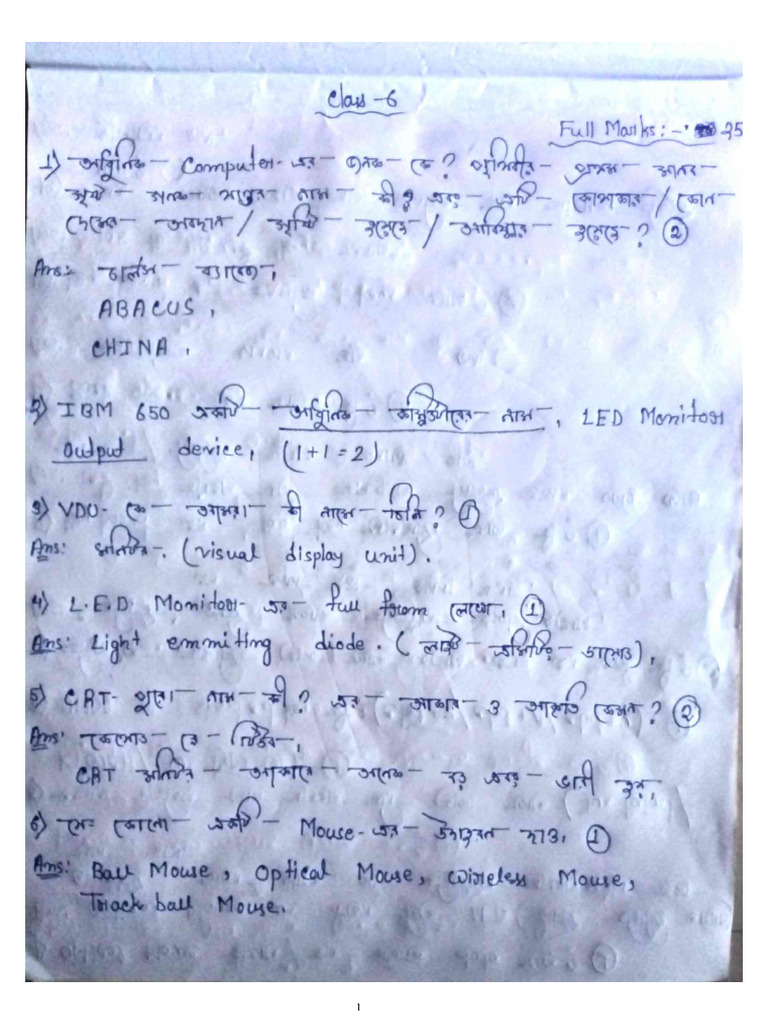 Class -6
Full Marks:- 25
1) আধুনিক Computer-এর জনক কে? পৃথিবীর প্রথম মানব
সৃষ্ট গনক যন্ত্রের নাম কী? এবং এটি কোথাকার / কোন
দেশের অবদান / সৃষ্টি হয়েছে / আবিষ্কার হয়েছে? ②
Ans: চার্লস ব্যাবেজ।
ABACUS,
CHINA.
2) IBM 650 একটি আধুনিক কম্পিউটারের নাম, LED Monitor
Output device, (1+1=2)
3) VDU- কে আমরা কী নামে চিনি? ①
Ans: মনিটর. (visual display unit).
4) L.E.D Monitor- এর full from লেখো, ①
Ans: Light emmiting diode. (লাইট এমিটিং ডায়োড),
5) CRT- পুরো নাম কী? এর আকার ও আকৃতি কেমন? ②
Ans: ক্যাথোড রে টিউব,
CRT মনিটর আকারে অনেক বড় এবং ভারী হয়,
6) যে কোনো একটি Mouse-এর উদাহরন দাও, ①
Ans: Ball Mouse, Optical Mouse, Wireless Mouse,
Track ball Mouse.
1